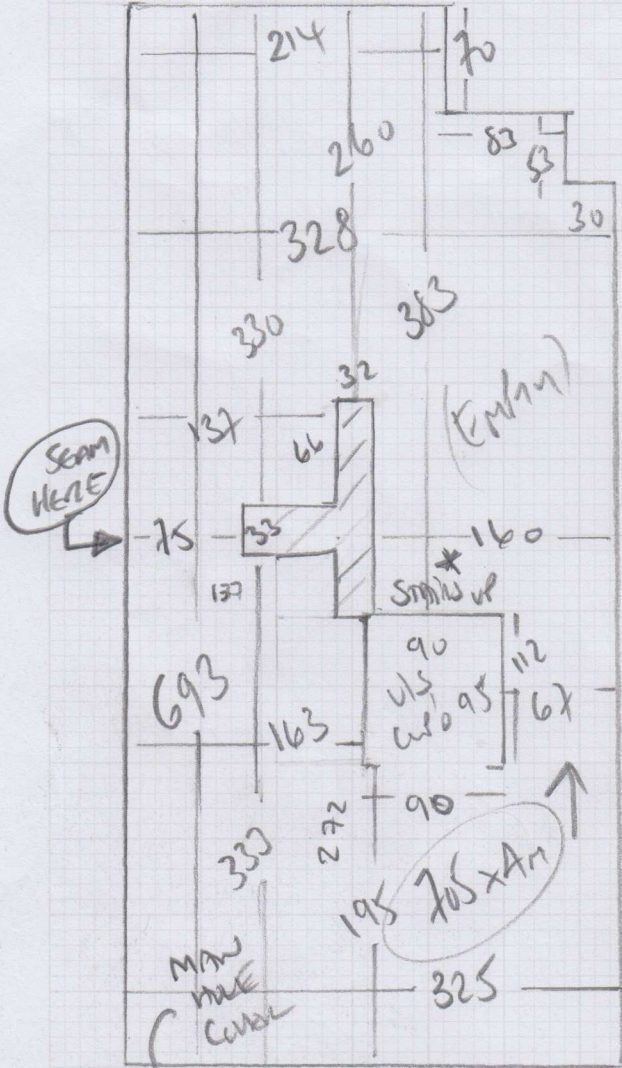 214
70
260
83
53
30
328
330
383
32
137
66
SEAM
HERE
75
33
160
*
137
STAIRS UP
90
U/S
95
112
693
67
163
90
272
330
195
705 x 4m
MAN
HOLE
COVER
325